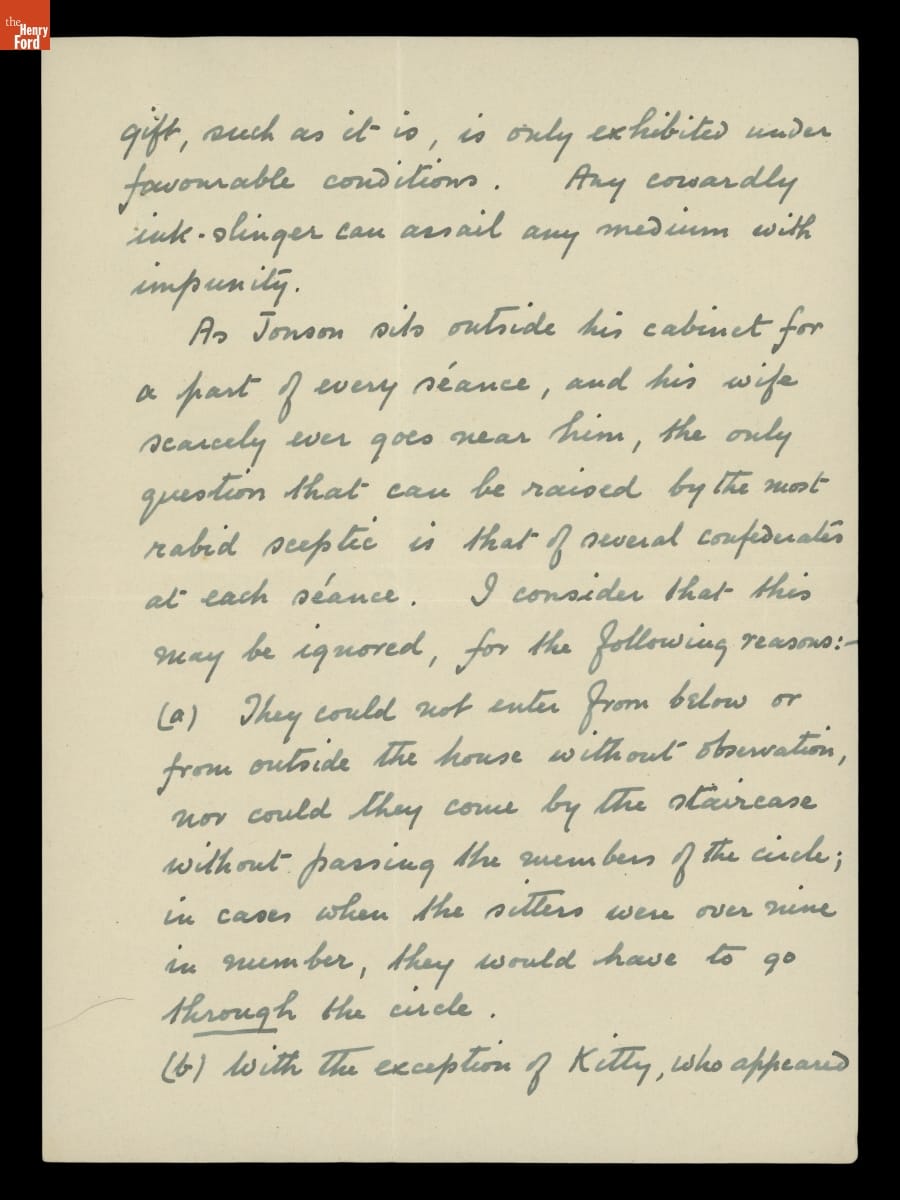 the
Henry
Ford
gift, such as it is, is only exhibited under
favourable conditions. Any cowardly
ink-slinger can assail any medium with
impunity.
As Jonson sits outside his cabinet for
a part of every séance, and his wife
scarcely ever goes near him, the only
question that can be raised by the most
rabid sceptic is that of several confederates
at each séance. I consider that this
may be ignored, for the following reasons:-
(a) They could not enter from below or
from outside the house without observation,
nor could they come by the staircase
without passing the members of the circle;
in cases when the sitters were over nine
in number, they would have to go
through the circle.
(b) With the exception of Kitty, who appeared